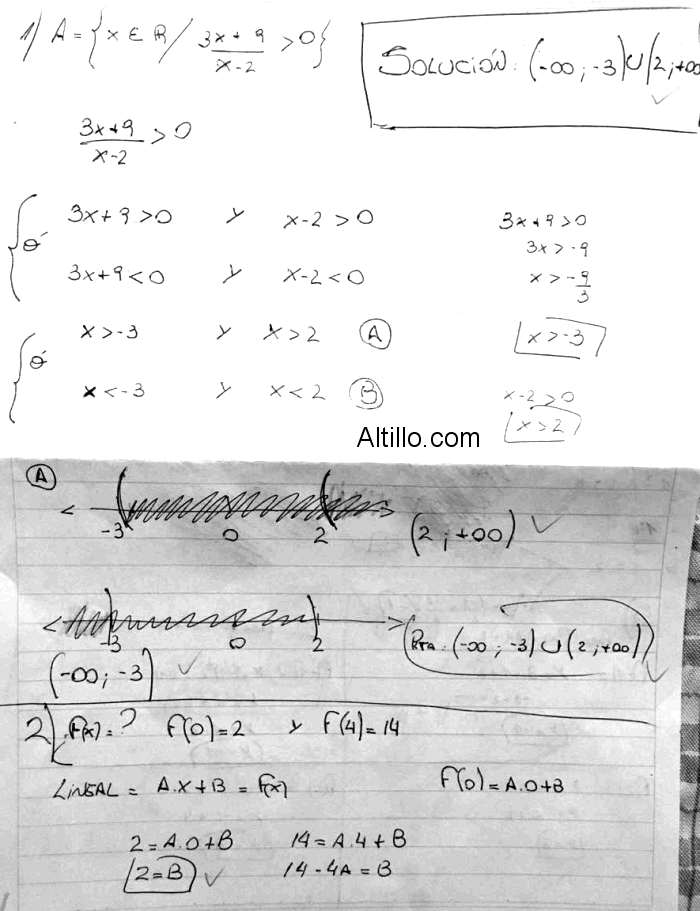 1) A = { x ∈ R / 3x+9 / x-2 > 0 }
SOLUCIÓN: (-∞ ; -3) ∪ (2 ; +∞
3x+9 / x-2 > 0
3x+9 > 0 y x-2 > 0
ó
3x+9 < 0 y x-2 < 0
3x+9 > 0
3x > -9
x > -9/3
x > -3
x > -3 y x > 2 (A)
ó
x < -3 y x < 2 (B)
x-2 > 0
x > 2
Altillo.com
(A)
-3 0 2
(2 ; +∞)
-3 0 2
(-∞ ; -3)
RTA: (-∞ ; -3) ∪ (2 ; +∞)
2) F(x) = ? F(0) = 2 y F(4) = 14
LINEAL = A.X + B = F(x)
F(0) = A.0+B
2 = A.0+B 14 = A.4+B
2 = B 14 - 4A = B